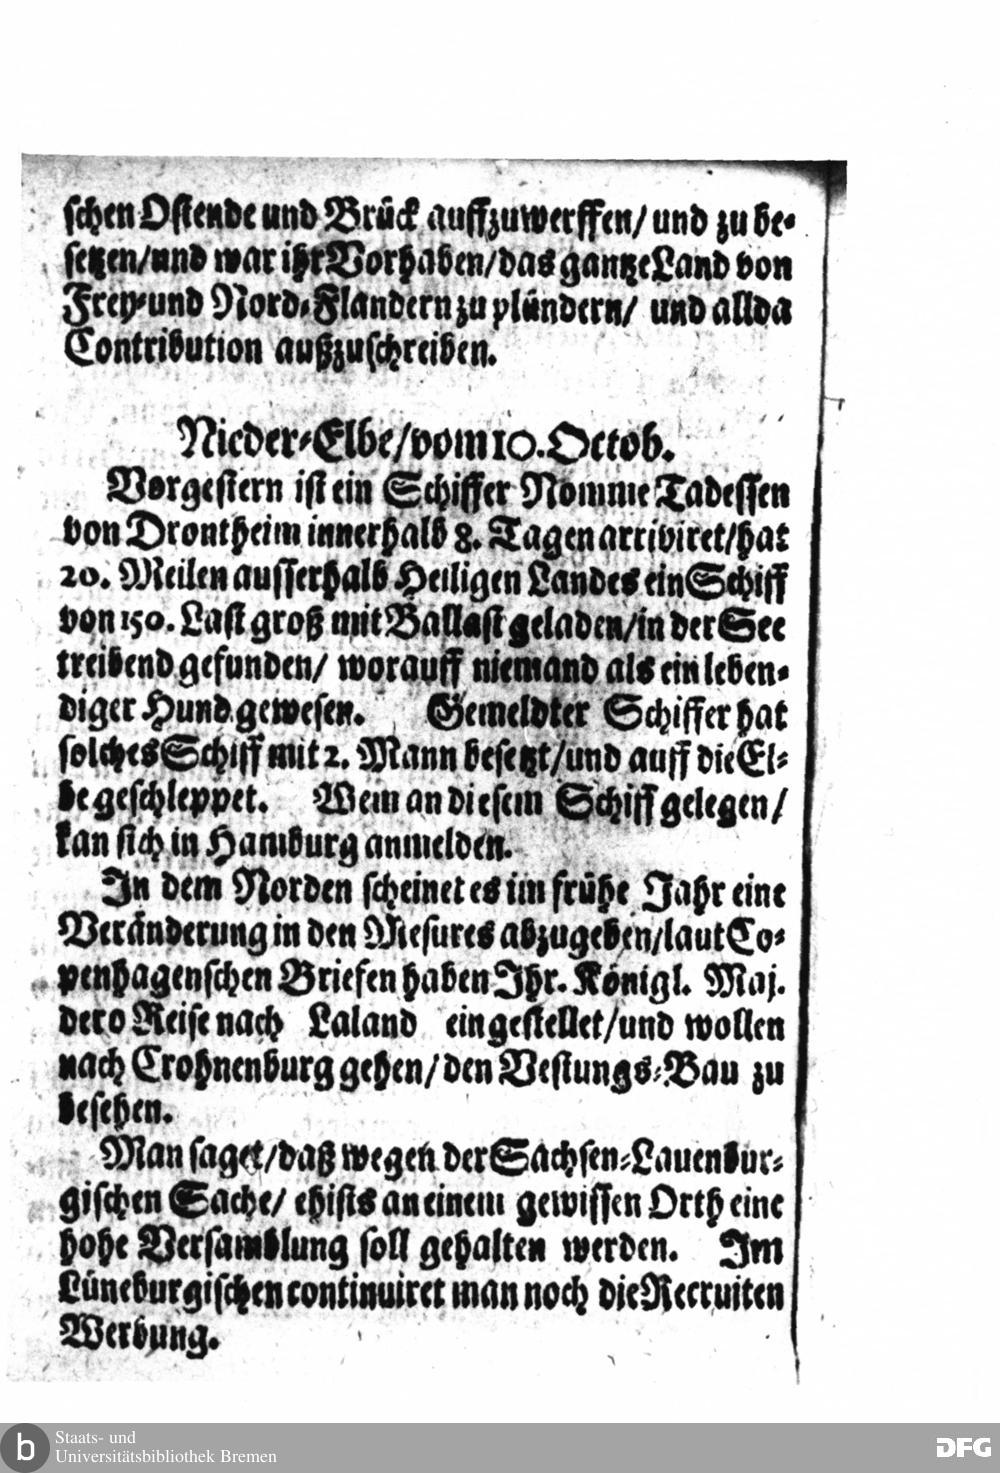 schen Ostende und Brück auffzuwerffen/ und zu be-
setzen/und war ihr Vorhaben/das gantze Land von
Frey- und Nord-Flandern zu plündern/ und allda
Contribution außzuschreiben.
Nieder-Elbe/vom 10. Octob.
Vorgestern ist ein Schiffer Nomme Tadessen
von Drontheim innerhalb 8. Tagen arriviret/hat
20. Meilen ausserhalb Heiligen Landes ein Schiff
von 150. Last groß mit Ballast geladen/in der See
treibend gefunden/ worauff niemand als ein leben-
diger Hund gewesen. Gemeldter Schiffer hat
solches Schiff mit 2. Mann besetzt/und auff die El-
be geschleppet. Wem an diesem Schiff gelegen/
kan sich in Hamburg anmelden.
In dem Norden scheinet es im frühe Jahr eine
Veränderung in den Mesures abzugeben/laut Co-
penhagenschen Briefen haben Ihr. Königl. Maj.
dero Reise nach Laland eingestellet/und wollen
nach Crohnenburg gehen/den Vestungs-Bau zu
besehen.
Man saget/daß wegen der Sachsen-Lauenbur-
gischen Sache/ ehists an einem gewissen Orth eine
hohe Versamblung soll gehalten werden. Im
Lüneburgischen continuiret man noch die Recruiten
Werbung.
b
Staats- und
Universitätsbibliothek Bremen
DFG